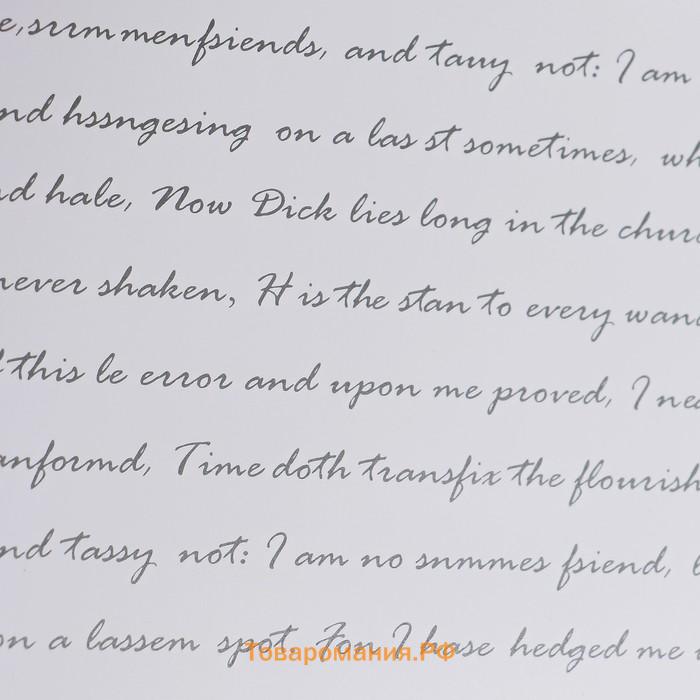 e, surm menfsiends, and tauy not: I am
nd hssngesing on a las st sometimes, wh
nd hale, Now Dick lies long in the churc
never shaken, H is the stan to every wand
this le error and upon me proved, I nea
anformd, Time doth transfix the flourish
nd tassy not: I am no snmmes fsiend, b
on a lassem spot, Fon I base hedged me
Товаромания.РФ